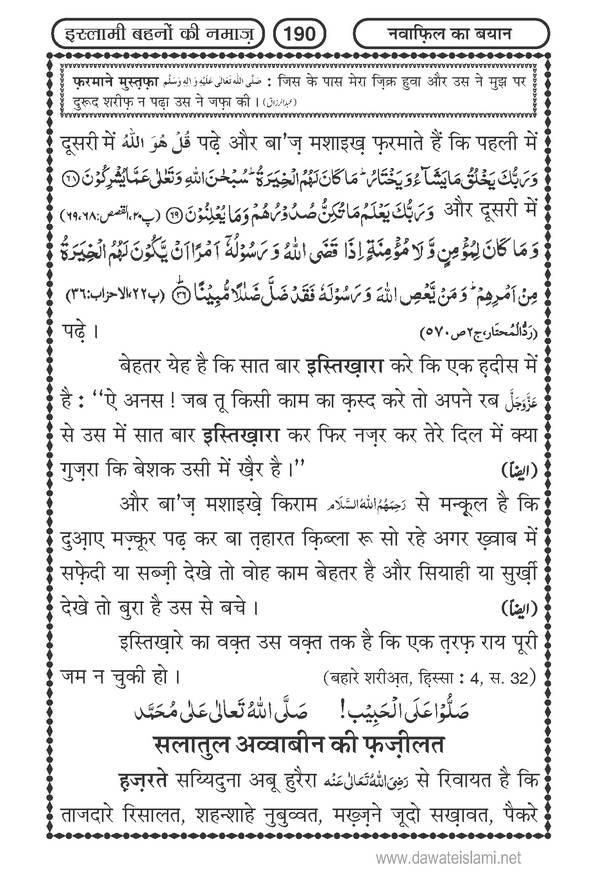 इस्लामी बहनों की नमाज़ 190 नवाफ़िल का बयान
फ़रमाने मुस्तफ़ा صَلَّى اللهُ تَعَالٰى عَلَيْهِ وَاٰلِهٖ وَسَلَّم : जिस के पास मेरा ज़िक्र हुवा और उस ने मुझ पर
दुरूद शरीफ़ न पढ़ा उस ने जफ़ा की। (عبدالرزاق)
दूसरी में قُلْ هُوَ اللّٰهُ पढ़े और बा'ज़ मशाइख़ फ़रमाते हैं कि पहली में
وَرَبُّكَ يَخْلُقُ مَا يَشَآءُ وَيَخْتَارُ ؕ مَا كَانَ لَهُمُ الْخِيَرَةُ ؕ سُبْحٰنَ اللّٰهِ وَتَعٰلٰى عَمَّا يُشْرِكُوْنَ ﴿۶۸﴾
और दूसरी में وَرَبُّكَ يَعْلَمُ مَا تُكِنُّ صُدُوْرُهُمْ وَمَا يُعْلِنُوْنَ ﴿۶۹﴾ (پ۲۰، القصص:۶۸،۶۹)
وَمَا كَانَ لِمُؤْمِنٍ وَّلَا مُؤْمِنَةٍ اِذَا قَضَى اللّٰهُ وَرَسُوْلُهٗۤ اَمْرًا اَنْ يَّكُوْنَ لَهُمُ الْخِيَرَةُ
مِنْ اَمْرِهِمْ ؕ وَمَنْ يَّعْصِ اللّٰهَ وَرَسُوْلَهٗ فَقَدْ ضَلَّ ضَلٰلًا مُّبِيْنًا ﴿۳۶﴾ (پ۲۲، الاحزاب:۳۶)
पढ़े। (رَدُّالْمُحتَار، ج۲ ص۵۷۰)
बेहतर येह है कि सात बार इस्तिख़ारा करे कि एक ह़दीस में
है : ''ऐ अनस ! जब तू किसी काम का क़स्द करे तो अपने रब عَزَّوَجَلَّ
से उस में सात बार इस्तिख़ारा कर फिर नज़र कर तेरे दिल में क्या
गुज़रा कि बेशक उसी में ख़ैर है।'' (ایضًا)
और बा'ज़ मशाइख़े किराम رَحِمَهُمُ اللهُ السَّلَام से मन्कूल है कि
दुआ़ए मज़्कूर पढ़ कर बा त़हारत क़िब्ला रू सो रहे अगर ख़्वाब में
सफ़ेदी या सब्ज़ी देखे तो वोह काम बेहतर है और सियाही या सुर्ख़ी
देखे तो बुरा है उस से बचे। (ایضًا)
इस्तिख़ारे का वक़्त उस वक़्त तक है कि एक त़रफ़ राय पूरी
जम न चुकी हो। (बहारे शरीअ़त, ह़िस्सा : 4, स. 32)
صَلُّوْا عَلَى الْحَبِيْب! صَلَّى اللهُ تَعَالٰى عَلٰى مُحَمَّد
सलातुल अव्वाबीन की फ़ज़ीलत
ह़ज़रते सय्यिदुना अबू हुरैरा رَضِىَ اللهُ تَعَالٰى عَنْه से रिवायत है कि
ताजदारे रिसालत, शहन्शाहे नुबुव्वत, मख़्ज़ने जूदो सख़ावत, पैकरे
www.dawateislami.net